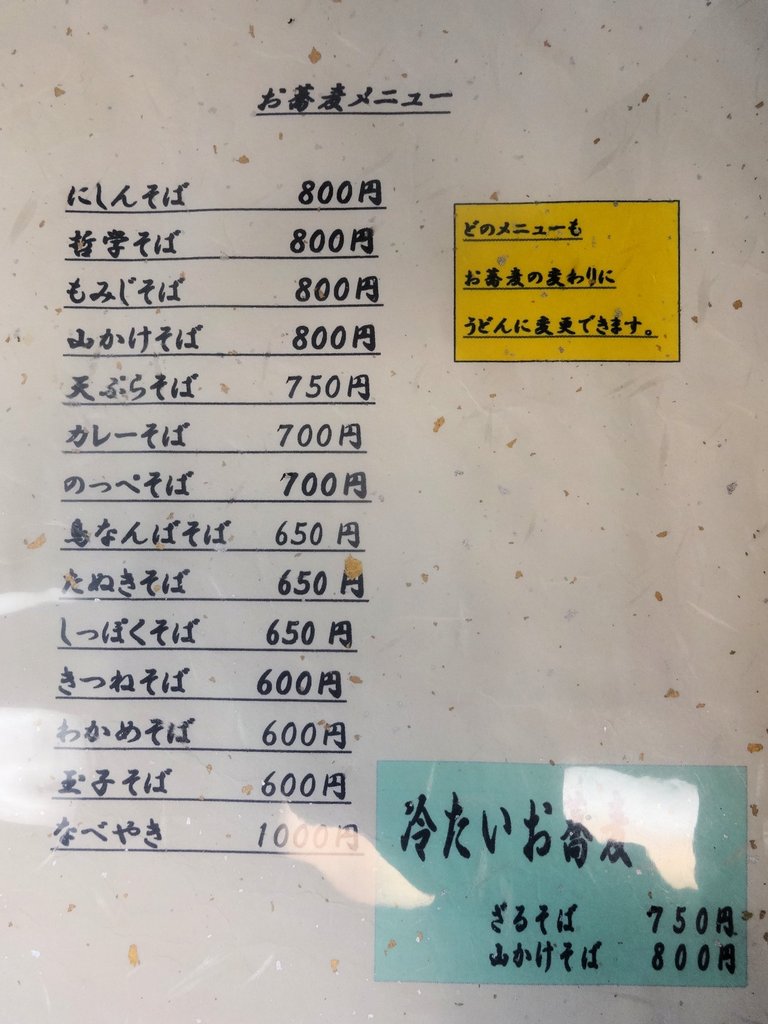 お蕎麦メニュー
にしんそば 800円
哲学そば 800円
もみじそば 800円
山かけそば 800円
天ぷらそば 750円
カレーそば 700円
のっぺそば 700円
鳥なんばそば 650円
たぬきそば 650円
しっぽくそば 650円
きつねそば 600円
わかめそば 600円
玉子そば 600円
なべやき 1000円
どのメニューも
お蕎麦の変わりに
うどんに変更できます。
冷たいお蕎麦
ざるそば 750円
山かけそば 800円